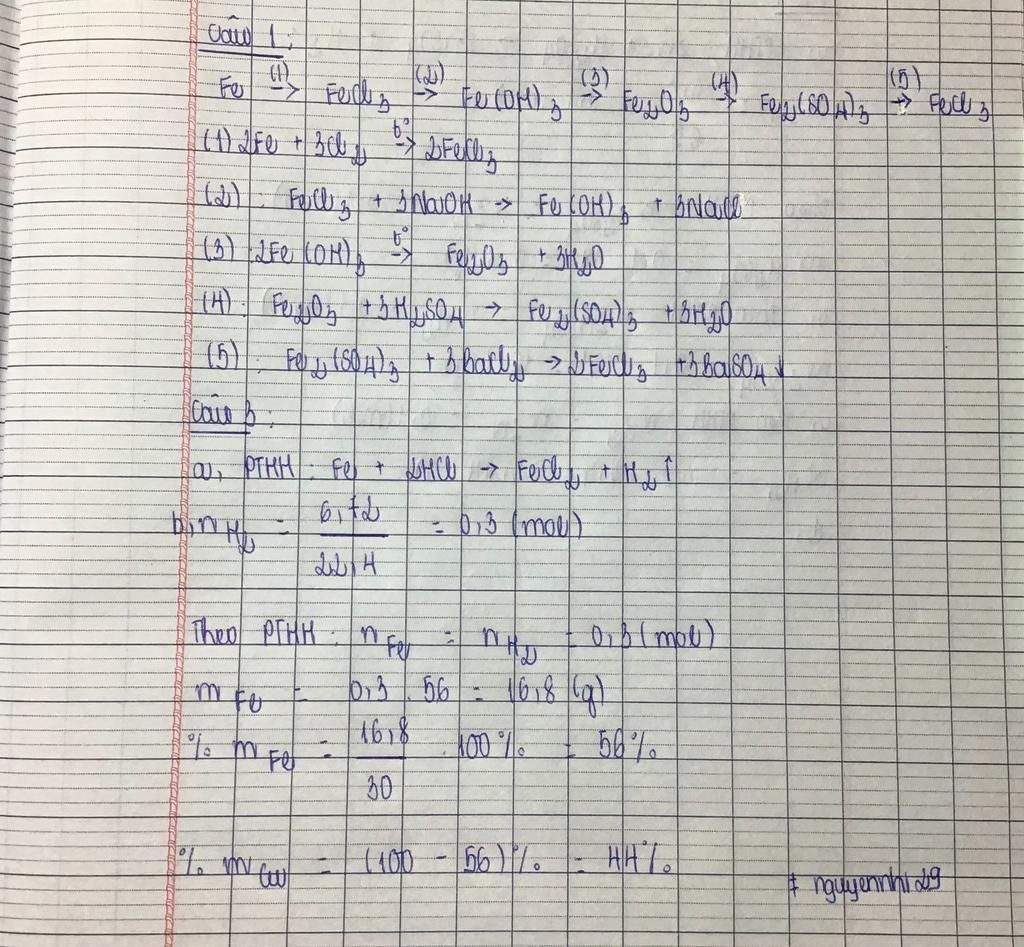 Câu 1:
Fe (1)→ FeCl₃ (2)→ Fe(OH)₃ (3)→ Fe₂O₃ (4)→ Fe₂(SO₄)₃ (5)→ FeCl₃
(1) 2Fe + 3Cl₂ t°→ 2FeCl₃
(2): FeCl₃ + 3NaOH → Fe(OH)₃ + 3NaCl
(3): 2Fe(OH)₃ t°→ Fe₂O₃ + 3H₂O
(4): Fe₂O₃ + 3H₂SO₄ → Fe₂(SO₄)₃ + 3H₂O
(5): Fe₂(SO₄)₃ + 3BaCl₂ → 2FeCl₃ + 3BaSO₄↓
Câu 3:
a, PTHH: Fe + 2HCl → FeCl₂ + H₂↑
b, n H₂ = 6,72 / 22,4 = 0,3 (mol)
Theo PTHH: n Fe = n H₂ = 0,3 (mol)
m Fe = 0,3 . 56 = 16,8 (g)
% m Fe = 16,8 / 30 . 100% = 56%
% m Cu = (100 - 56)% = 44%
# nguyennhi29